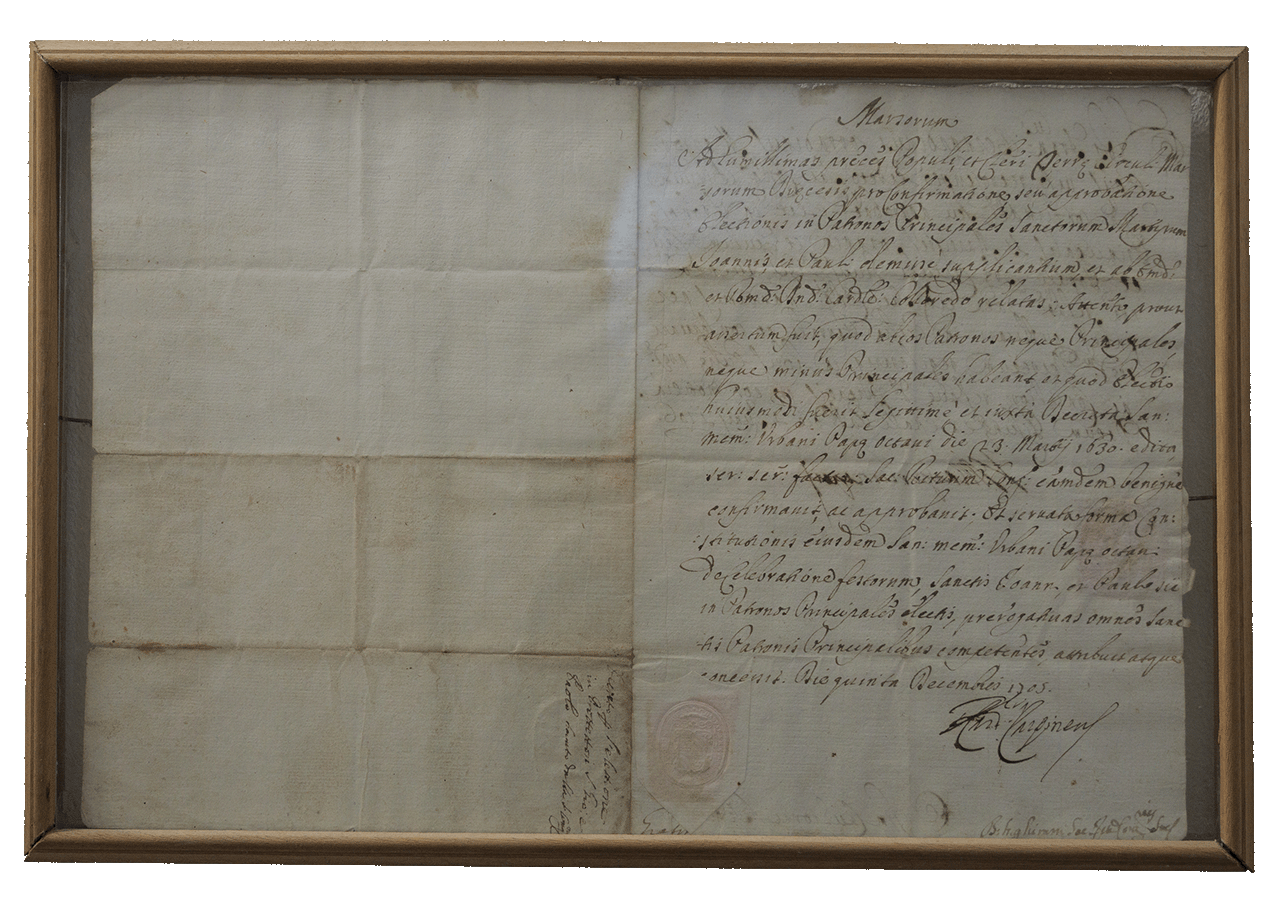 Marsorum
Ad humillimas preces Populi, et Cleri Terrę Mar
sorum Dięcesis pro Confirmatione, seu approbatione
Electionis in Patronos Principales Sanctorum Martyrum
Joannis, et Pauli clemine supplicantium, et ab Emo:
et Rmo: Dno: Cardle: Colloredo relatas: Attento prout
assertum fuit, quod alios Patronos neque Principales,
neque minus Principales habeant, et quod Electio
huiusmodi fuerit legitimè et iuxta Decreta San:
mem: Urbani Papę octavi die 23. Martij 1630. edita
ser: ser: Sac: Rituum Cong: eamdem benignè
confirmavit, ac approbavit; Et servata forma Con:
:stitutionis eiusdem San: mem: Urbani Papę octavi
de Celebratione festorum, Sanctis Joann: et Paulo sic
in Patronos Principales electis, prerogativas omnes Sanc
tis Patronis Principalibus competentes, attribuit atque
concessit. Die quinta Decembris 1705.
Card: